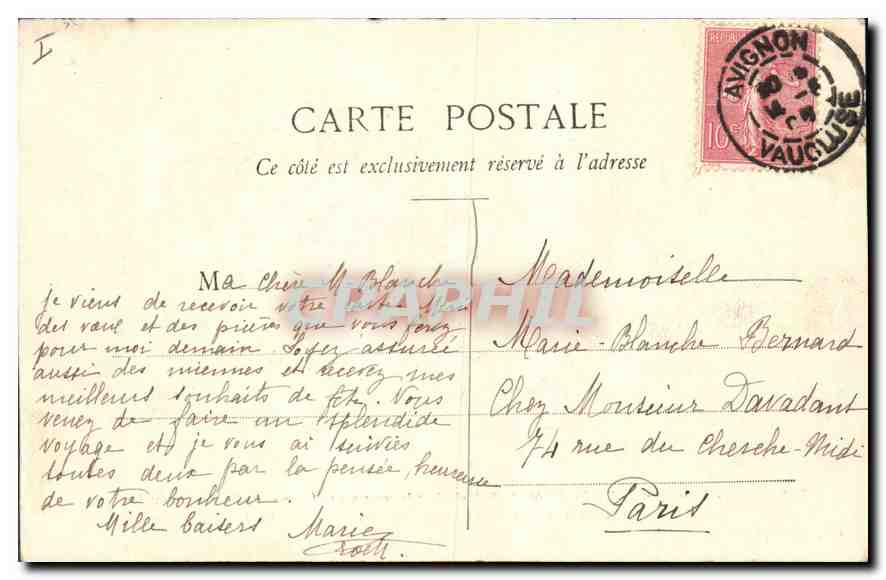 I
RÉPUBLIQUE
10 c
AVIGNON
VAUCLUSE
CARTE POSTALE
Ce côté est exclusivement réservé à l'adresse
CPAPHIL
Ma Chère M. Blanche
je viens de recevoir votre carte. Merci
des vœux et des prières que vous ferez
pour moi demain. Soyez assurée
aussi des miennes et recevez mes
meilleurs souhaits de fête. Vous
venez de faire un splendide
voyage et je vous ai suivies
toutes deux par la pensée, heureuse
de votre bonheur.
Mille baisers Marie
Mademoiselle
Marie-Blanche Bernard
Chez Monsieur Davadant
74 rue du Cherche-Midi
Paris